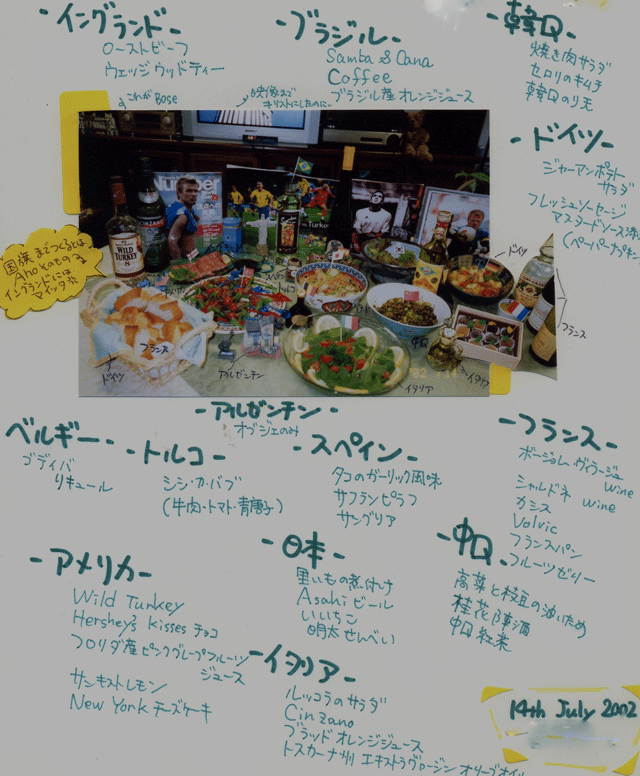 -イングランド-
ローストビーフ
ウェッジウッドティー
これがBose
-ブラジル-
Samba & Cana
Coffee
ブラジル産オレンジジュース
-韓Q-
焼き肉サラダ
セロリのキムチ
韓Qのりモ
-ドイツ-
ジャーマンポテト
サラダ
フレッシュソーセージ
マスタードソース
(ペーパーナプキン
国旗まで
イングランドには
Number
WILD TURKEY
8
CINZANO
Turkey
ドイツ
フランス
アルゼンチン
イタリア
中Q
イタリア
ドイツ
フランス
-アルゼンチン-
オブジェのみ
ベルギー-
ゴディバ
リキュール
-トルコ-
シシ・カ・バブ
(牛肉・トマト・青唐子)
-スペイン-
タコのガーリック風味
サフランピラフ
サングリア
-フランス-
ボージョレ・ヴィラージュ
wine
シャルドネ wine
カシス
Volvic
フランスパン
フルーツゼリー
-アメリカ-
Wild Turkey
Hershey's kisses チョコ
フロリダ産ピンクグレープフルーツ
ジュース
サンキストレモン
New York チーズケーキ
-日本-
里いもの煮付け
Asahi ビール
いいちこ
明太せんべい
-中Q-
高菜と枝豆の油いため
桂花陳酒
中Q紅茶
-イタリア-
ルッコラのサラダ
Cinzano
ブラッドオレンジジュース
トスカーナ州 エキストラヴァージン オリーブオイル
14th July 2002